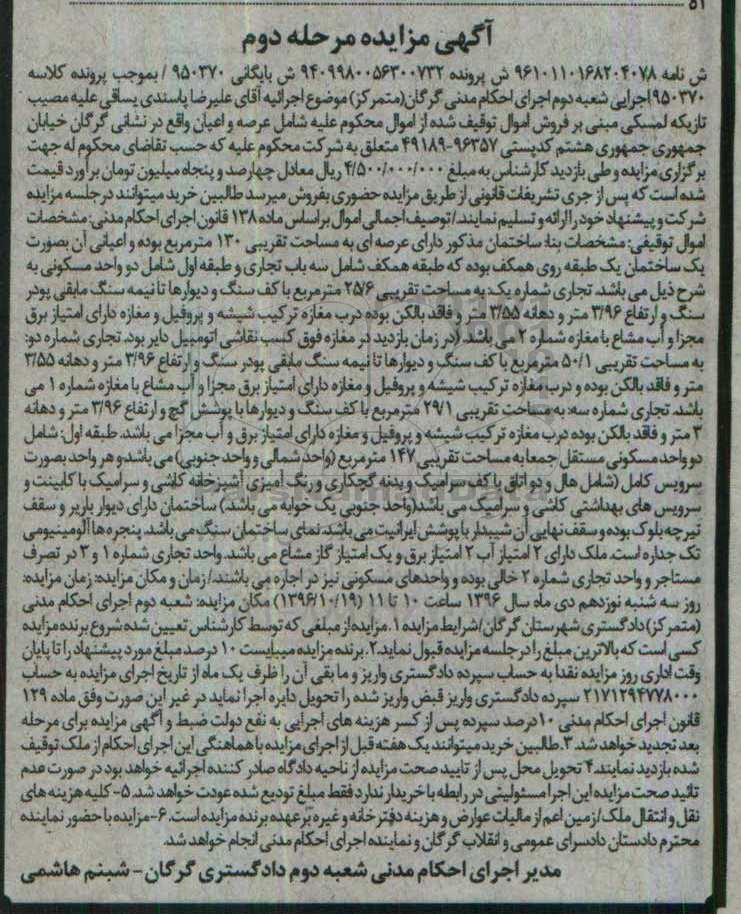 ۵۱
آگهی مزایده مرحله دوم
ش نامه ۹۶۱۰۱۱۰۱۶۸۲۰۴۰۷۸ ش پرونده ۹۴۰۹۹۸۰۰۵۶۳۰۰۷۳۲ ش بایگانی ۹۵۰۳۷۰ / بموجب پرونده کلاسه
۹۵۰۳۷۰ اجرایی شعبه دوم اجرای احکام مدنی گرگان(متمرکز) موضوع اجرائیه آقای علیرضا پاسندی یساقی علیه مصیب
تازیکه لمسکی مبنی بر فروش اموال توقیف شده از اموال محکوم علیه شامل عرصه و اعیان واقع در نشانی گرگان خیابان
جمهوری جمهوری هشتم کدپستی ۹۶۳۵۷-۴۹۱۸۹ متعلق به شرکت محکوم علیه که حسب تقاضای محکوم له جهت
برگزاری مزایده و طی بازدید کارشناس به مبلغ ۴/۵۰۰/۰۰۰/۰۰۰ ریال معادل چهارصد و پنجاه میلیون تومان برآورد قیمت
شده است که پس از جری تشریفات قانونی از طریق مزایده حضوری بفروش میرسد طالبین خرید میتوانند درجلسه مزایده
شرکت و پیشنهاد خود را ارائه و تسلیم نمایند/ توصیف اجمالی اموال براساس ماده ۱۳۸ قانون اجرای احکام مدنی: مشخصات
اموال توقیفی: مشخصات بنا: ساختمان مذکور دارای عرصه ای به مساحت تقریبی ۱۳۰ مترمربع بوده و اعیانی آن بصورت
یک ساختمان یک طبقه روی همکف بوده که طبقه همکف شامل سه باب تجاری و طبقه اول شامل دو واحد مسکونی به
شرح ذیل می باشد. تجاری شماره یک: به مساحت تقریبی ۲۵/۶ مترمربع با کف سنگ و دیوارها تا نیمه سنگ مابقی پودر
سنگ و ارتفاع ۳/۹۶ متر و دهانه ۳/۵۵ متر و فاقد بالکن بوده درب مغازه ترکیب شیشه و پروفیل و مغازه دارای امتیاز برق
مجزا و آب مشاع با مغازه شماره ۲ می باشد. (در زمان بازدید در مغازه فوق کسب نقاشی اتومبیل دایر بود. تجاری شماره دو:
به مساحت تقریبی ۵۰/۱ مترمربع با کف سنگ و دیوارها تا نیمه سنگ مابقی پودر سنگ و ارتفاع ۳/۹۶ متر و دهانه ۳/۵۵
متر و فاقد بالکن بوده و درب مغازه ترکیب شیشه و پروفیل و مغازه دارای امتیاز برق مجزا و آب مشاع با مغازه شماره ۱ می
باشد. تجاری شماره سه: به مساحت تقریبی ۲۹/۱ مترمربع با کف سنگ و دیوارها با پوشش گچ و ارتفاع ۳/۹۶ متر و دهانه
۳ متر و فاقد بالکن بوده درب مغازه ترکیب شیشه و پروفیل و مغازه دارای امتیاز برق و آب مجزا می باشد. طبقه اول: شامل
دو واحد مسکونی مستقل جمعا به مساحت تقریبی ۱۴۷ مترمربع (واحد شمالی و واحد جنوبی) می باشد و هر واحد بصورت
سرویس کامل (شامل هال و دو اتاق با کف سرامیک و بدنه گچکاری و رنگ آمیزی آشپزخانه کاشی و سرامیک با کابینت و
سرویس های بهداشتی کاشی و سرامیک می باشد(واحد جنوبی یک خوابه می باشد.) ساختمان دارای دیوار باربر و سقف
تیرچه بلوک بوده و سقف نهایی آن شیبدار با پوشش ایرانیت می باشد. نمای ساختمان سنگ می باشد. پنجره ها آلومینیومی
تک جداره است. ملک دارای ۲ امتیاز آب ۲ امتیاز برق و یک امتیاز گاز مشاع می باشد. واحد تجاری شماره ۱ و ۳ در تصرف
مستاجر و واحد تجاری شماره ۲ خالی بوده و واحدهای مسکونی نیز در اجاره می باشند./ زمان و مکان مزایده: زمان مزایده:
روز سه شنبه نوزدهم دی ماه سال ۱۳۹۶ ساعت ۱۰ تا ۱۱ (۱۳۹۶/۱۰/۱۹) مکان مزایده: شعبه دوم اجرای احکام مدنی
(متمرکز) دادگستری شهرستان گرگان/شرایط مزایده ۱. مزایده از مبلغی که توسط کارشناس تعیین شده شروع برنده مزایده
کسی است که بالاترین مبلغ را درجلسه مزایده قبول نماید.۲. برنده مزایده میبایست ۱۰ درصد مبلغ مورد پیشنهاد را تا پایان
وقت اداری روز مزایده نقدا به حساب سپرده دادگستری واریز و مابقی آن را ظرف یک ماه از تاریخ اجرای مزایده به حساب
۲۱۷۱۲۹۴۷۷۸۰۰۰ سپرده دادگستری واریز قبض واریز شده را تحویل دایره اجرا نماید در غیر این صورت وفق ماده ۱۲۹
قانون اجرای احکام مدنی ۱۰ درصد سپرده پس از کسر هزینه های اجرایی به نفع دولت ضبط و آگهی مزایده برای مرحله
بعد تجدید خواهد شد. ۳. طالبین خرید میتوانند یک هفته قبل از اجرای مزایده با هماهنگی این اجرای احکام از ملک توقیف
شده بازدید نمایند.۴ تحویل محل پس از تایید صحت مزایده از ناحیه دادگاه صادر کننده اجرائیه خواهد بود در صورت عدم
تائید صحت مزایده این اجرا مسئولیتی در رابطه با خریدار ندارد فقط مبلغ تودیع شده عودت خواهد شد. ۵- کلیه هزینه های
نقل و انتقال ملک/ زمین اعم از مالیات عوارض و هزینه دفترخانه و غیره بر عهده برنده مزایده است. ۶-مزایده با حضور نماینده
محترم دادستان دادسرای عمومی و انقلاب گرگان و نماینده اجرای احکام مدنی انجام خواهد شد.
مدیر اجرای احکام مدنی شعبه دوم دادگستری گرگان - شبنم هاشمی